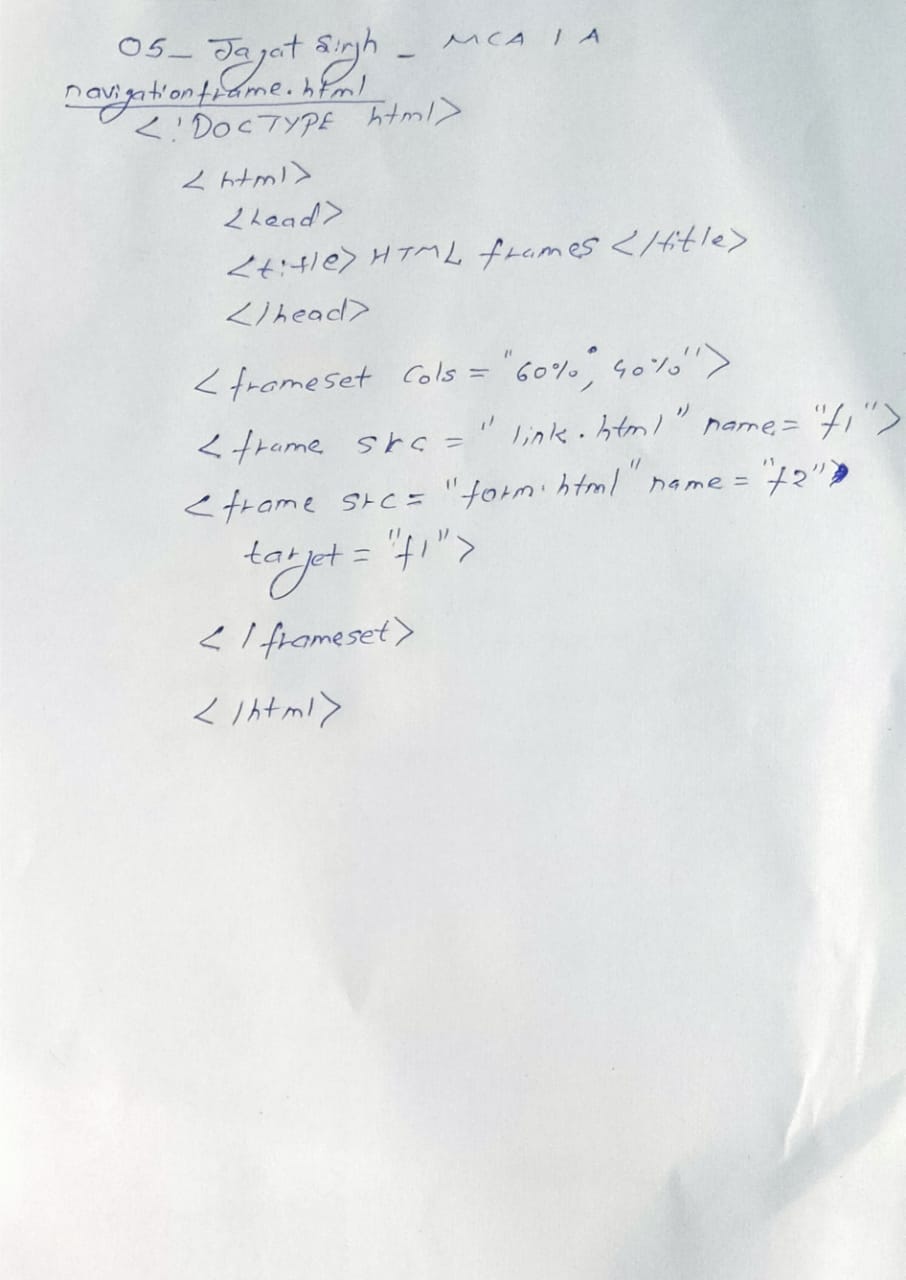 05_ Jagat Singh - MCA 1 A
navigationframe.html
<!DOCTYPE html>
<html>
<head>
<title> HTML frames </title>
</head>
<frameset cols = "60%, 40%">
<frame src = "link.html" name = "f1">
<frame src = "form.html" name = "f2"
target = "f1">
</frameset>
</html>